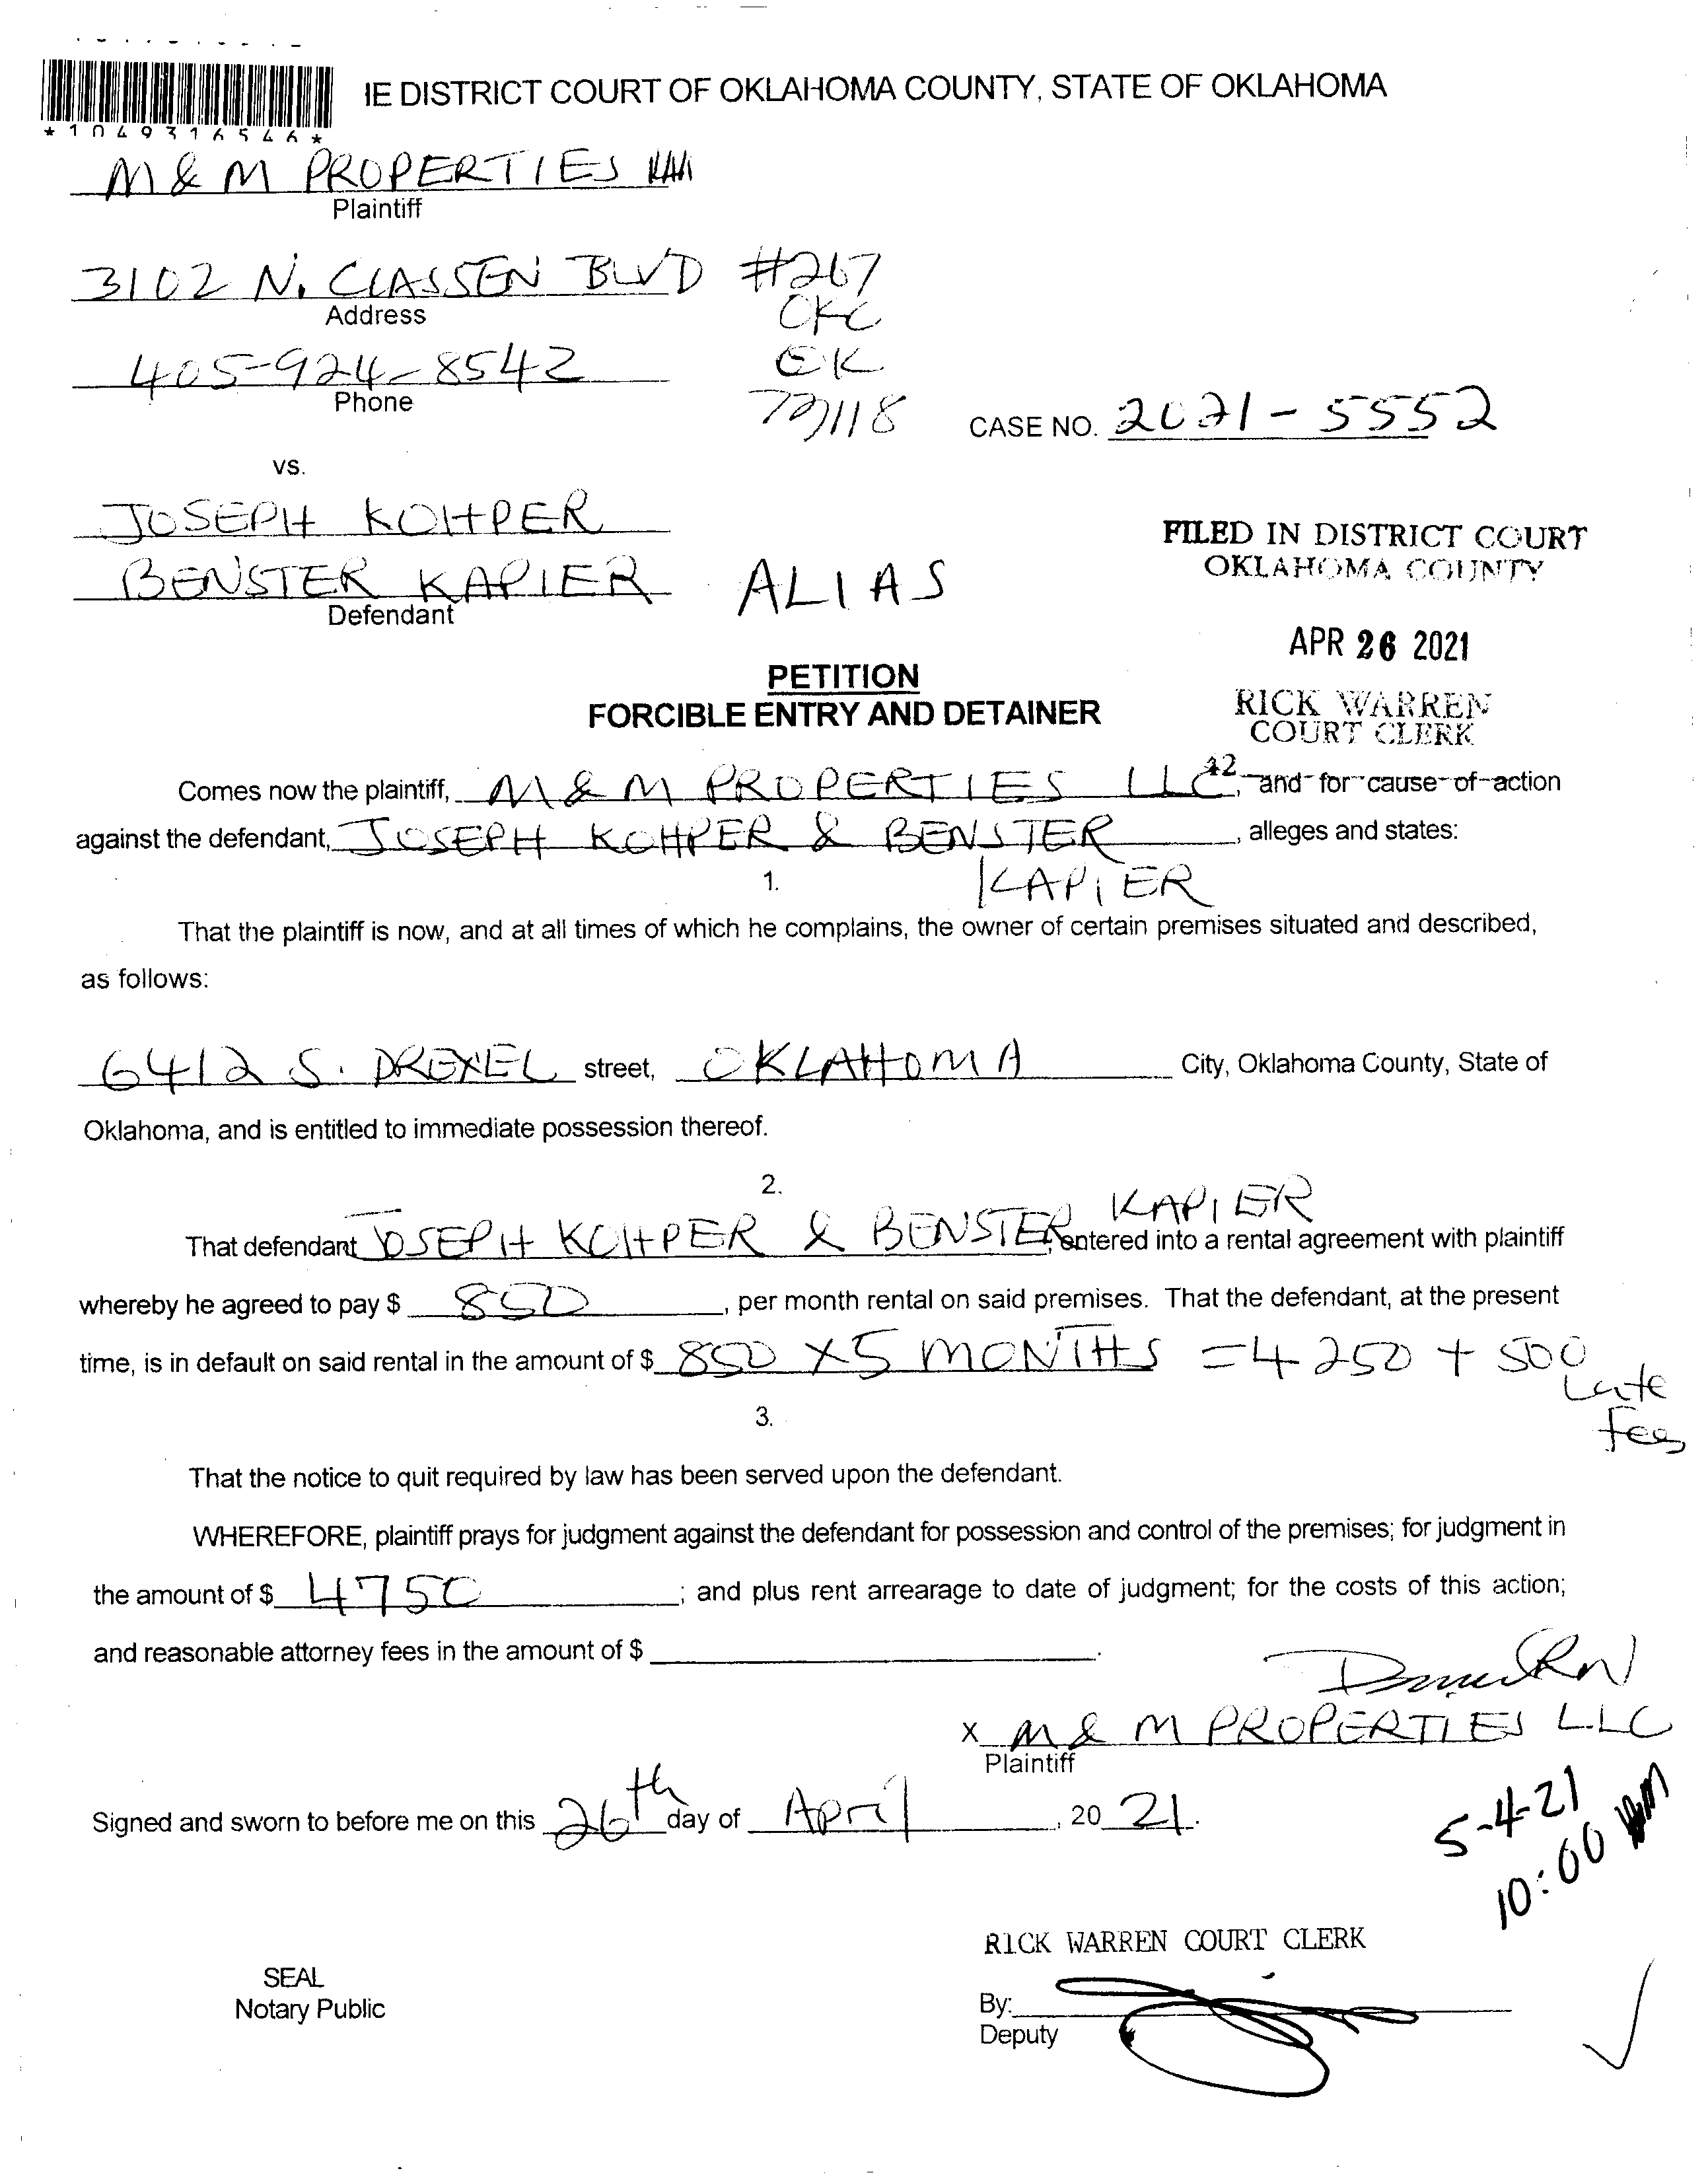 *1049316546*
IE DISTRICT COURT OF OKLAHOMA COUNTY, STATE OF OKLAHOMA
M & M PROPERTIES
Plaintiff
3102 N. CLASSEN BLVD #267
Address
OKC
405-924-8542
OK
Phone
73118
CASE NO. 2021-5552
vs.
JOSEPH KOHPER
BENSTER KAPIER ALIAS
Defendant
FILED IN DISTRICT COURT
OKLAHOMA COUNTY
APR 26 2021
RICK WARREN
COURT CLERK
PETITION
FORCIBLE ENTRY AND DETAINER
42
Comes now the plaintiff, M & M PROPERTIES LLC, and for cause of action
against the defendant, JOSEPH KOHPER & BENSTER, alleges and states:
KAPIER
1.
That the plaintiff is now, and at all times of which he complains, the owner of certain premises situated and described,
as follows:
6412 S. DREXEL street, OKLAHOMA City, Oklahoma County, State of
Oklahoma, and is entitled to immediate possession thereof.
2.
KAPIER
That defendant JOSEPH KOHPER & BENSTER, entered into a rental agreement with plaintiff
whereby he agreed to pay $ 850, per month rental on said premises. That the defendant, at the present
time, is in default on said rental in the amount of $ 850 X 5 MONTHS = 4250 + 500
Late
Fees
3.
That the notice to quit required by law has been served upon the defendant.
WHEREFORE, plaintiff prays for judgment against the defendant for possession and control of the premises; for judgment in
the amount of $ 4750; and plus rent arrearage to date of judgment; for the costs of this action;
and reasonable attorney fees in the amount of $ .
X M & M PROPERTIES LLC
Plaintiff
Signed and sworn to before me on this 26th day of April, 20 21.
5-4-21
10:00
RICK WARREN COURT CLERK
SEAL
Notary Public
By:
Deputy